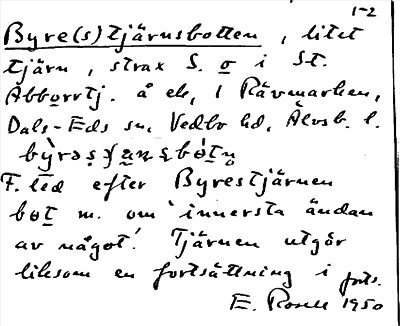 1-2
Byre(s)tjärnsbotten, litet
tjärn, strax S. o i St.
Abborrtj. å ek, 1 Rävmarken,
Dals-Eds sn, Vedbo hd, Älvsb. l.
F. led efter Byrestjärnen
bot m. om 'innersta ändan
av något'. Tjärnen utgör
liksom en fortsättning i forts.
E. Rosell 1950